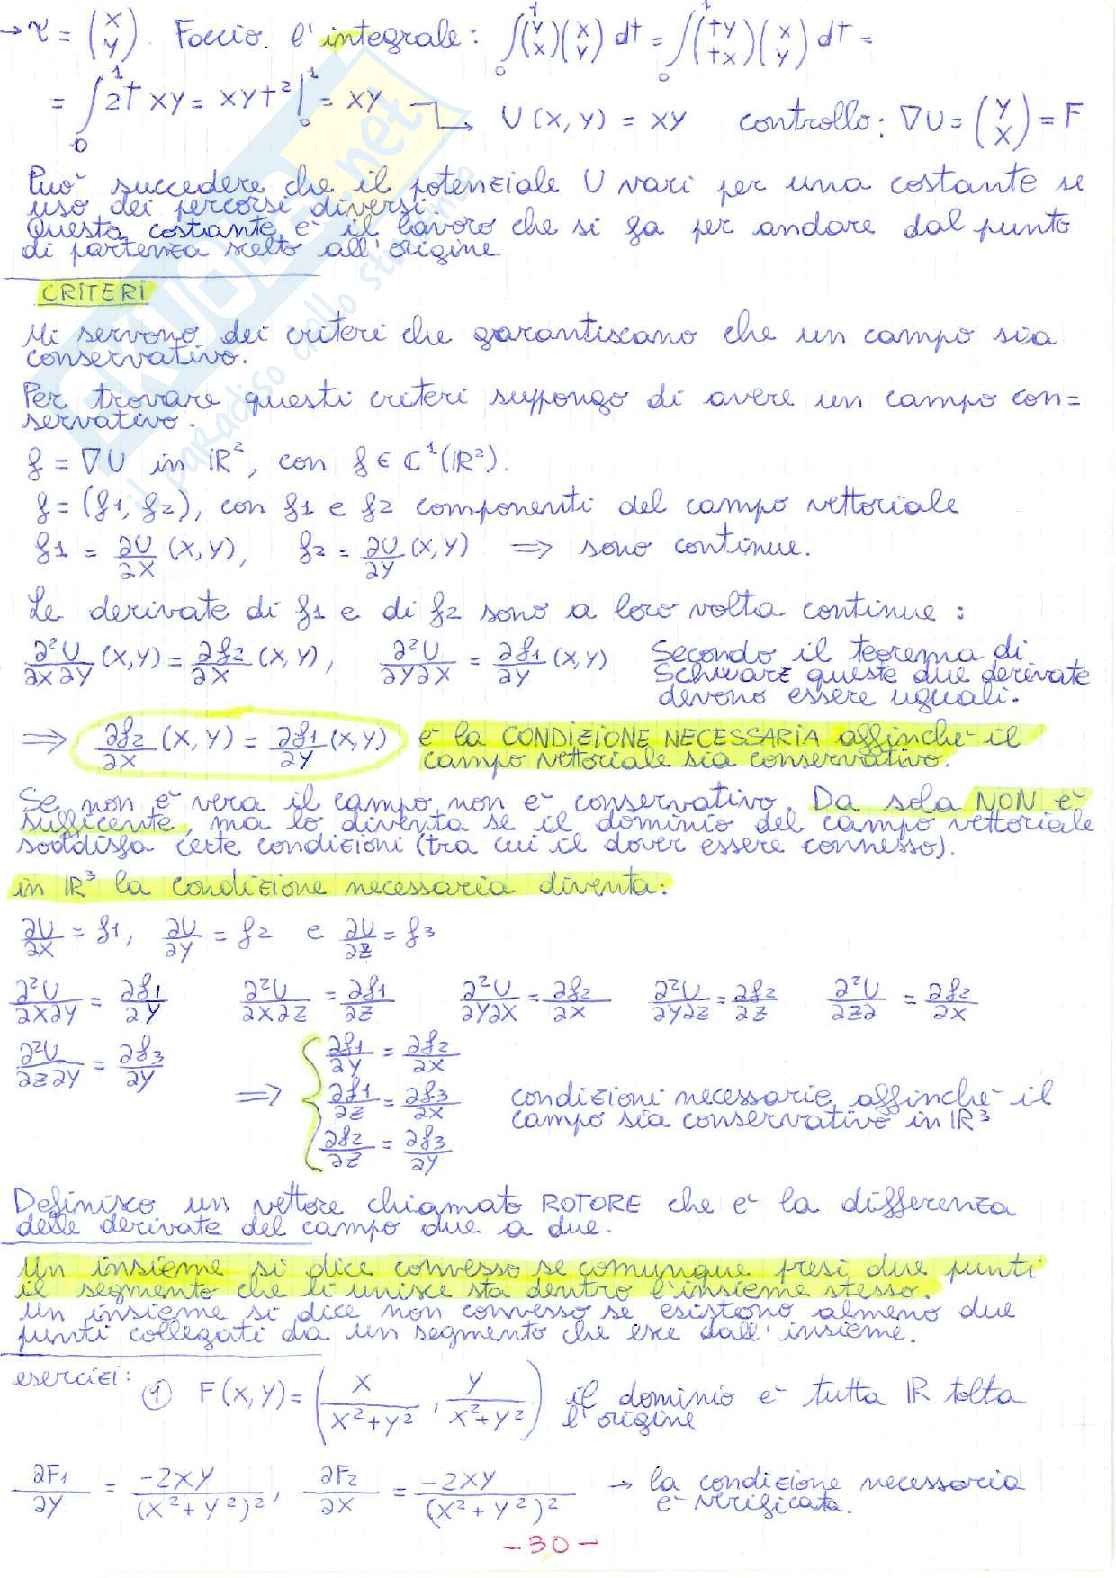 → r' = (x y). Faccio l'integrale: ∫₀¹ (y x)(x y) dt = ∫₀¹ (ty tx)(x y) dt =
= ∫₀¹ 2t xy = xyt² |₀¹ = xy ↳ U(x,y) = xy controllo: ∇U = (y x) = F
Può succedere che il potenziale U vari per una costante se
uso dei percorsi diversi.
Questa costante è il lavoro che si fa per andare dal punto
di partenza scelto all'origine
CRITERI
Mi servono dei criteri che garantiscano che un campo sia
conservativo.
Per trovare questi criteri suppongo di avere un campo con=
servativo.
f = ∇U in ℝ², con f ∈ C¹(ℝ²).
f = (f1, f2), con f1 e f2 componenti del campo vettoriale
f1 = ∂U/∂x (x,y), f2 = ∂U/∂y (x,y) ⇒ sono continue.
Le derivate di f1 e di f2 sono a loro volta continue:
∂²U/∂x∂y (x,y) = ∂f2/∂x (x,y), ∂²U/∂y∂x = ∂f1/∂y (x,y) Secondo il teorema di
Schwarz queste due derivate
devono essere uguali.
⇒ ∂f2/∂x (x,y) = ∂f1/∂y (x,y) è la CONDIZIONE NECESSARIA affinchè il
campo vettoriale sia conservativo.
Se non è vera il campo non è conservativo. Da sola NON è
sufficente, ma lo diventa se il dominio del campo vettoriale
soddisfa certe condizioni (tra cui il dover essere connesso).
in ℝ³ la condizione necessaria diventa:
∂U/∂x = f1, ∂U/∂y = f2 e ∂U/∂z = f3
∂²U/∂x∂y = ∂f1/∂y ∂²U/∂x∂z = ∂f1/∂z ∂²U/∂y∂x = ∂f2/∂x ∂²U/∂y∂z = ∂f2/∂z ∂²U/∂z∂ = ∂f2/∂x
∂²U/∂z∂y = ∂f3/∂y
⇒ { ∂f1/∂y = ∂f2/∂x
∂f1/∂z = ∂f3/∂x
∂f2/∂z = ∂f3/∂y
condizioni necessarie affinchè il
campo sia conservativo in ℝ³
Definisco un vettore chiamato ROTORE che è la differenza
delle derivate del campo due a due.
Un insieme si dice convesso se comunque presi due punti
il segmento che li unisce sta dentro l'insieme stesso.
un insieme si dice non convesso se esistono almeno due
punti collegati da un segmento che esce dall'insieme.
esercizi:
① F(x,y) = (x/(x²+y²), y/(x²+y²)) il dominio è tutta ℝ tolta
l'origine
∂F1/∂y = -2xy/(x²+y²)², ∂F2/∂x = -2xy/(x²+y²)² → la condizione necessaria
è verificata.
-30-
SKUOLA.net
il paradiso dello studente